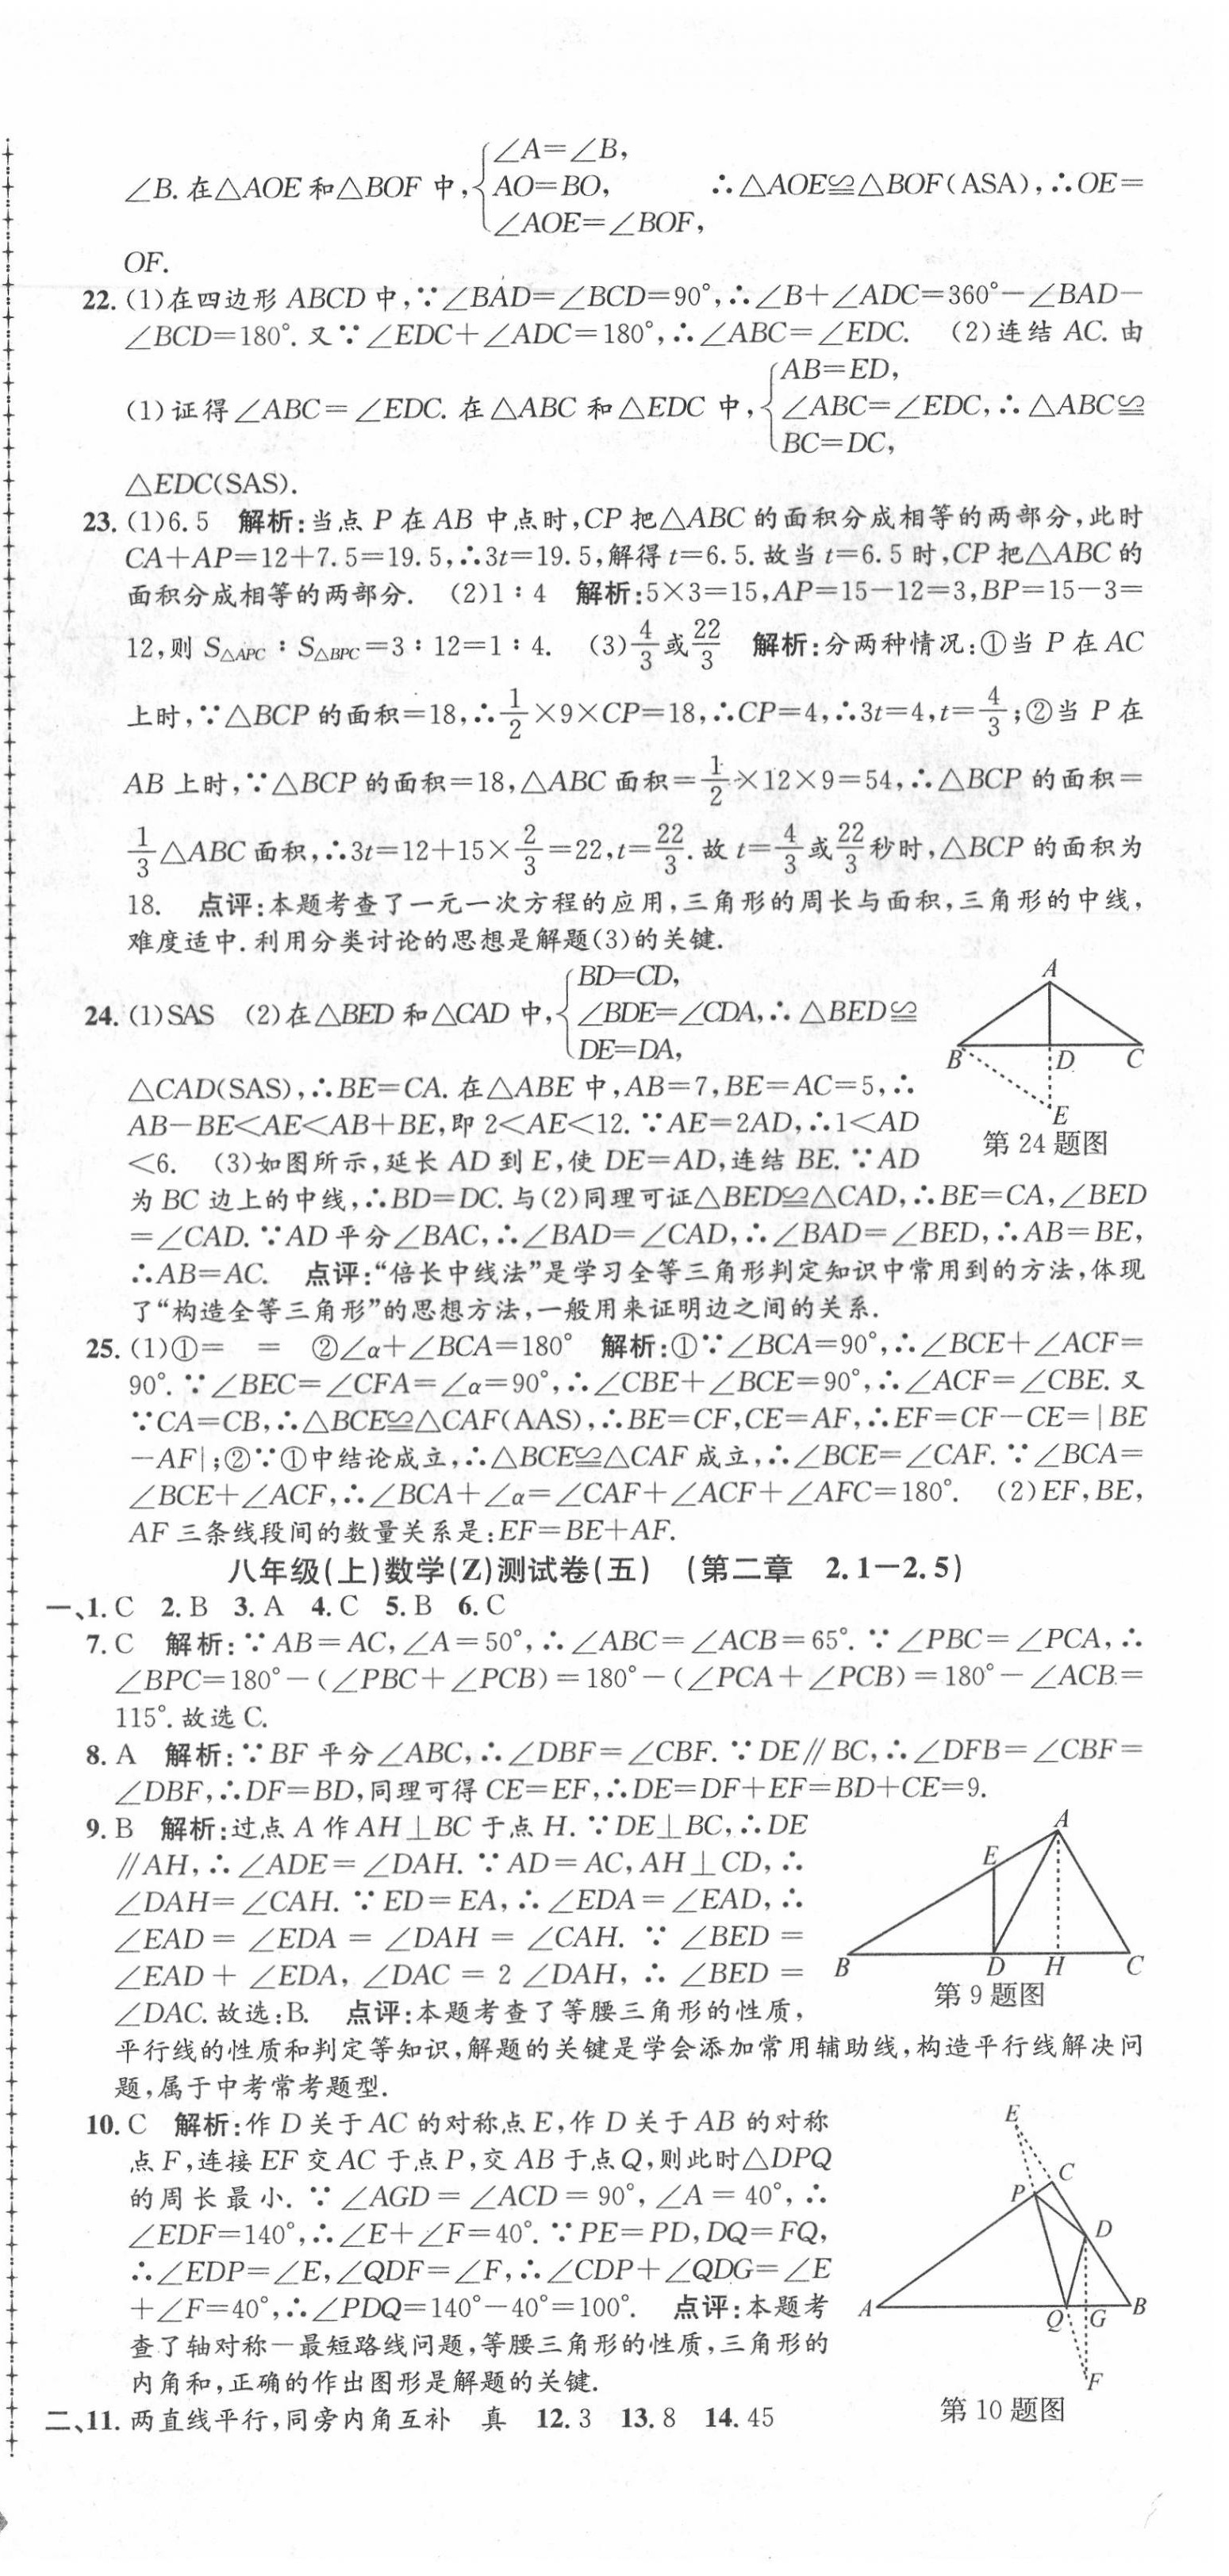 ∠B.在△AOE和△BOF中,{∠A=∠B, AO=BO, ∠AOE=∠BOF, ∴△AOE≌△BOF(ASA),∴OE=
OF.
22.(1)在四边形ABCD中,∵∠BAD=∠BCD=90°,∴∠B+∠ADC=360°-∠BAD-
∠BCD=180°.又∵∠EDC+∠ADC=180°,∴∠ABC=∠EDC. (2)连结AC.由
(1)证得∠ABC=∠EDC.在△ABC和△EDC中,{AB=ED, ∠ABC=∠EDC, BC=DC, ∴△ABC≌
△EDC(SAS).
23.(1)6.5 解析:当点P在AB中点时,CP把△ABC的面积分成相等的两部分,此时
CA+AP=12+7.5=19.5,∴3t=19.5,解得t=6.5.故当t=6.5时,CP把△ABC的
面积分成相等的两部分. (2)1∶4 解析:5×3=15,AP=15-12=3,BP=15-3=
12,则S△APC∶S△BPC=3∶12=1∶4. (3)4/3或22/3 解析:分两种情况:①当P在AC
上时,∵△BCP的面积=18,∴1/2×9×CP=18,∴CP=4,∴3t=4,t=4/3;②当P在
AB上时,∵△BCP的面积=18,△ABC面积=1/2×12×9=54,∴△BCP的面积=
1/3△ABC面积,∴3t=12+15×2/3=22,t=22/3.故t=4/3或22/3秒时,△BCP的面积为
18. 点评:本题考查了一元一次方程的应用,三角形的周长与面积,三角形的中线,
难度适中.利用分类讨论的思想是解题(3)的关键.
24.(1)SAS (2)在△BED和△CAD中,{BD=CD, ∠BDE=∠CDA, DE=DA, ∴△BED≌
△CAD(SAS),∴BE=CA.在△ABE中,AB=7,BE=AC=5,∴
AB-BE<AE<AB+BE,即2<AE<12.∵AE=2AD,∴1<AD
<6. (3)如图所示,延长AD到E,使DE=AD,连结BE.∵AD
A
B
D
C
E
第24题图
为BC边上的中线,∴BD=DC.与(2)同理可证△BED≌△CAD,∴BE=CA,∠BED
=∠CAD.∵AD平分∠BAC,∴∠BAD=∠CAD,∴∠BAD=∠BED,∴AB=BE,
∴AB=AC. 点评:“倍长中线法”是学习全等三角形判定知识中常用到的方法,体现
了“构造全等三角形”的思想方法,一般用来证明边之间的关系.
25.(1)①= = ②∠α+∠BCA=180° 解析:①∵∠BCA=90°,∴∠BCE+∠ACF=
90°.∵∠BEC=∠CFA=∠α=90°,∴∠CBE+∠BCE=90°,∴∠ACF=∠CBE.又
∵CA=CB,∴△BCE≌△CAF(AAS),∴BE=CF,CE=AF,∴EF=CF-CE=|BE
-AF|;②∵①中结论成立,∴△BCE≌△CAF成立,∴∠BCE=∠CAF.∵∠BCA=
∠BCE+∠ACF,∴∠BCA+∠α=∠CAF+∠ACF+∠AFC=180°. (2)EF,BE,
AF三条线段间的数量关系是:EF=BE+AF.
八年级(上)数学(Z)测试卷(五) (第二章 2.1-2.5)
一、1.C 2.B 3.A 4.C 5.B 6.C
7.C 解析:∵AB=AC,∠A=50°,∴∠ABC=∠ACB=65°.∵∠PBC=∠PCA,∴
∠BPC=180°-(∠PBC+∠PCB)=180°-(∠PCA+∠PCB)=180°-∠ACB=
115°.故选C.
8.A 解析:∵BF平分∠ABC,∴∠DBF=∠CBF.∵DE∥BC,∴∠DFB=∠CBF=
∠DBF,∴DF=BD,同理可得CE=EF,∴DE=DF+EF=BD+CE=9.
9.B 解析:过点A作AH⊥BC于点H.∵DE⊥BC,∴DE
∥AH,∴∠ADE=∠DAH.∵AD=AC,AH⊥CD,∴
∠DAH=∠CAH.∵ED=EA,∴∠EDA=∠EAD,∴
∠EAD=∠EDA=∠DAH=∠CAH.∵∠BED=
∠EAD+∠EDA,∠DAC=2∠DAH,∴∠BED=
∠DAC.故选:B. 点评:本题考查了等腰三角形的性质,
A
E
B
D
H
C
第9题图
平行线的性质和判定等知识,解题的关键是学会添加常用辅助线,构造平行线解决问
题,属于中考常考题型.
10.C 解析:作D关于AC的对称点E,作D关于AB的对称
点F,连接EF交AC于点P,交AB于点Q,则此时△DPQ
的周长最小.∵∠AGD=∠ACD=90°,∠A=40°,∴
∠EDF=140°,∴∠E+∠F=40°.∵PE=PD,DQ=FQ,
∴∠EDP=∠E,∠QDF=∠F,∴∠CDP+∠QDG=∠E
+∠F=40°,∴∠PDQ=140°-40°=100°. 点评:本题考
查了轴对称—最短路线问题,等腰三角形的性质,三角形的
内角和,正确的作出图形是解题的关键.
E
P
C
D
A
Q
G
B
F
第10题图
二、11.两直线平行,同旁内角互补 真 12.3 13.8 14.45